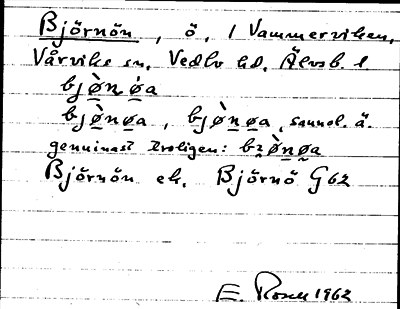 Björnön, ö, i Vammerviken,
Vårviks sn, Vedbo hd, Älvsb. l.
bjø̀nøa
bjø̀nøa, bjø̀nøa, sannol. ä.
genuinast troligen: bɀø̀nøa
Björnön ek. Björnö G62
E. Rosell 1962